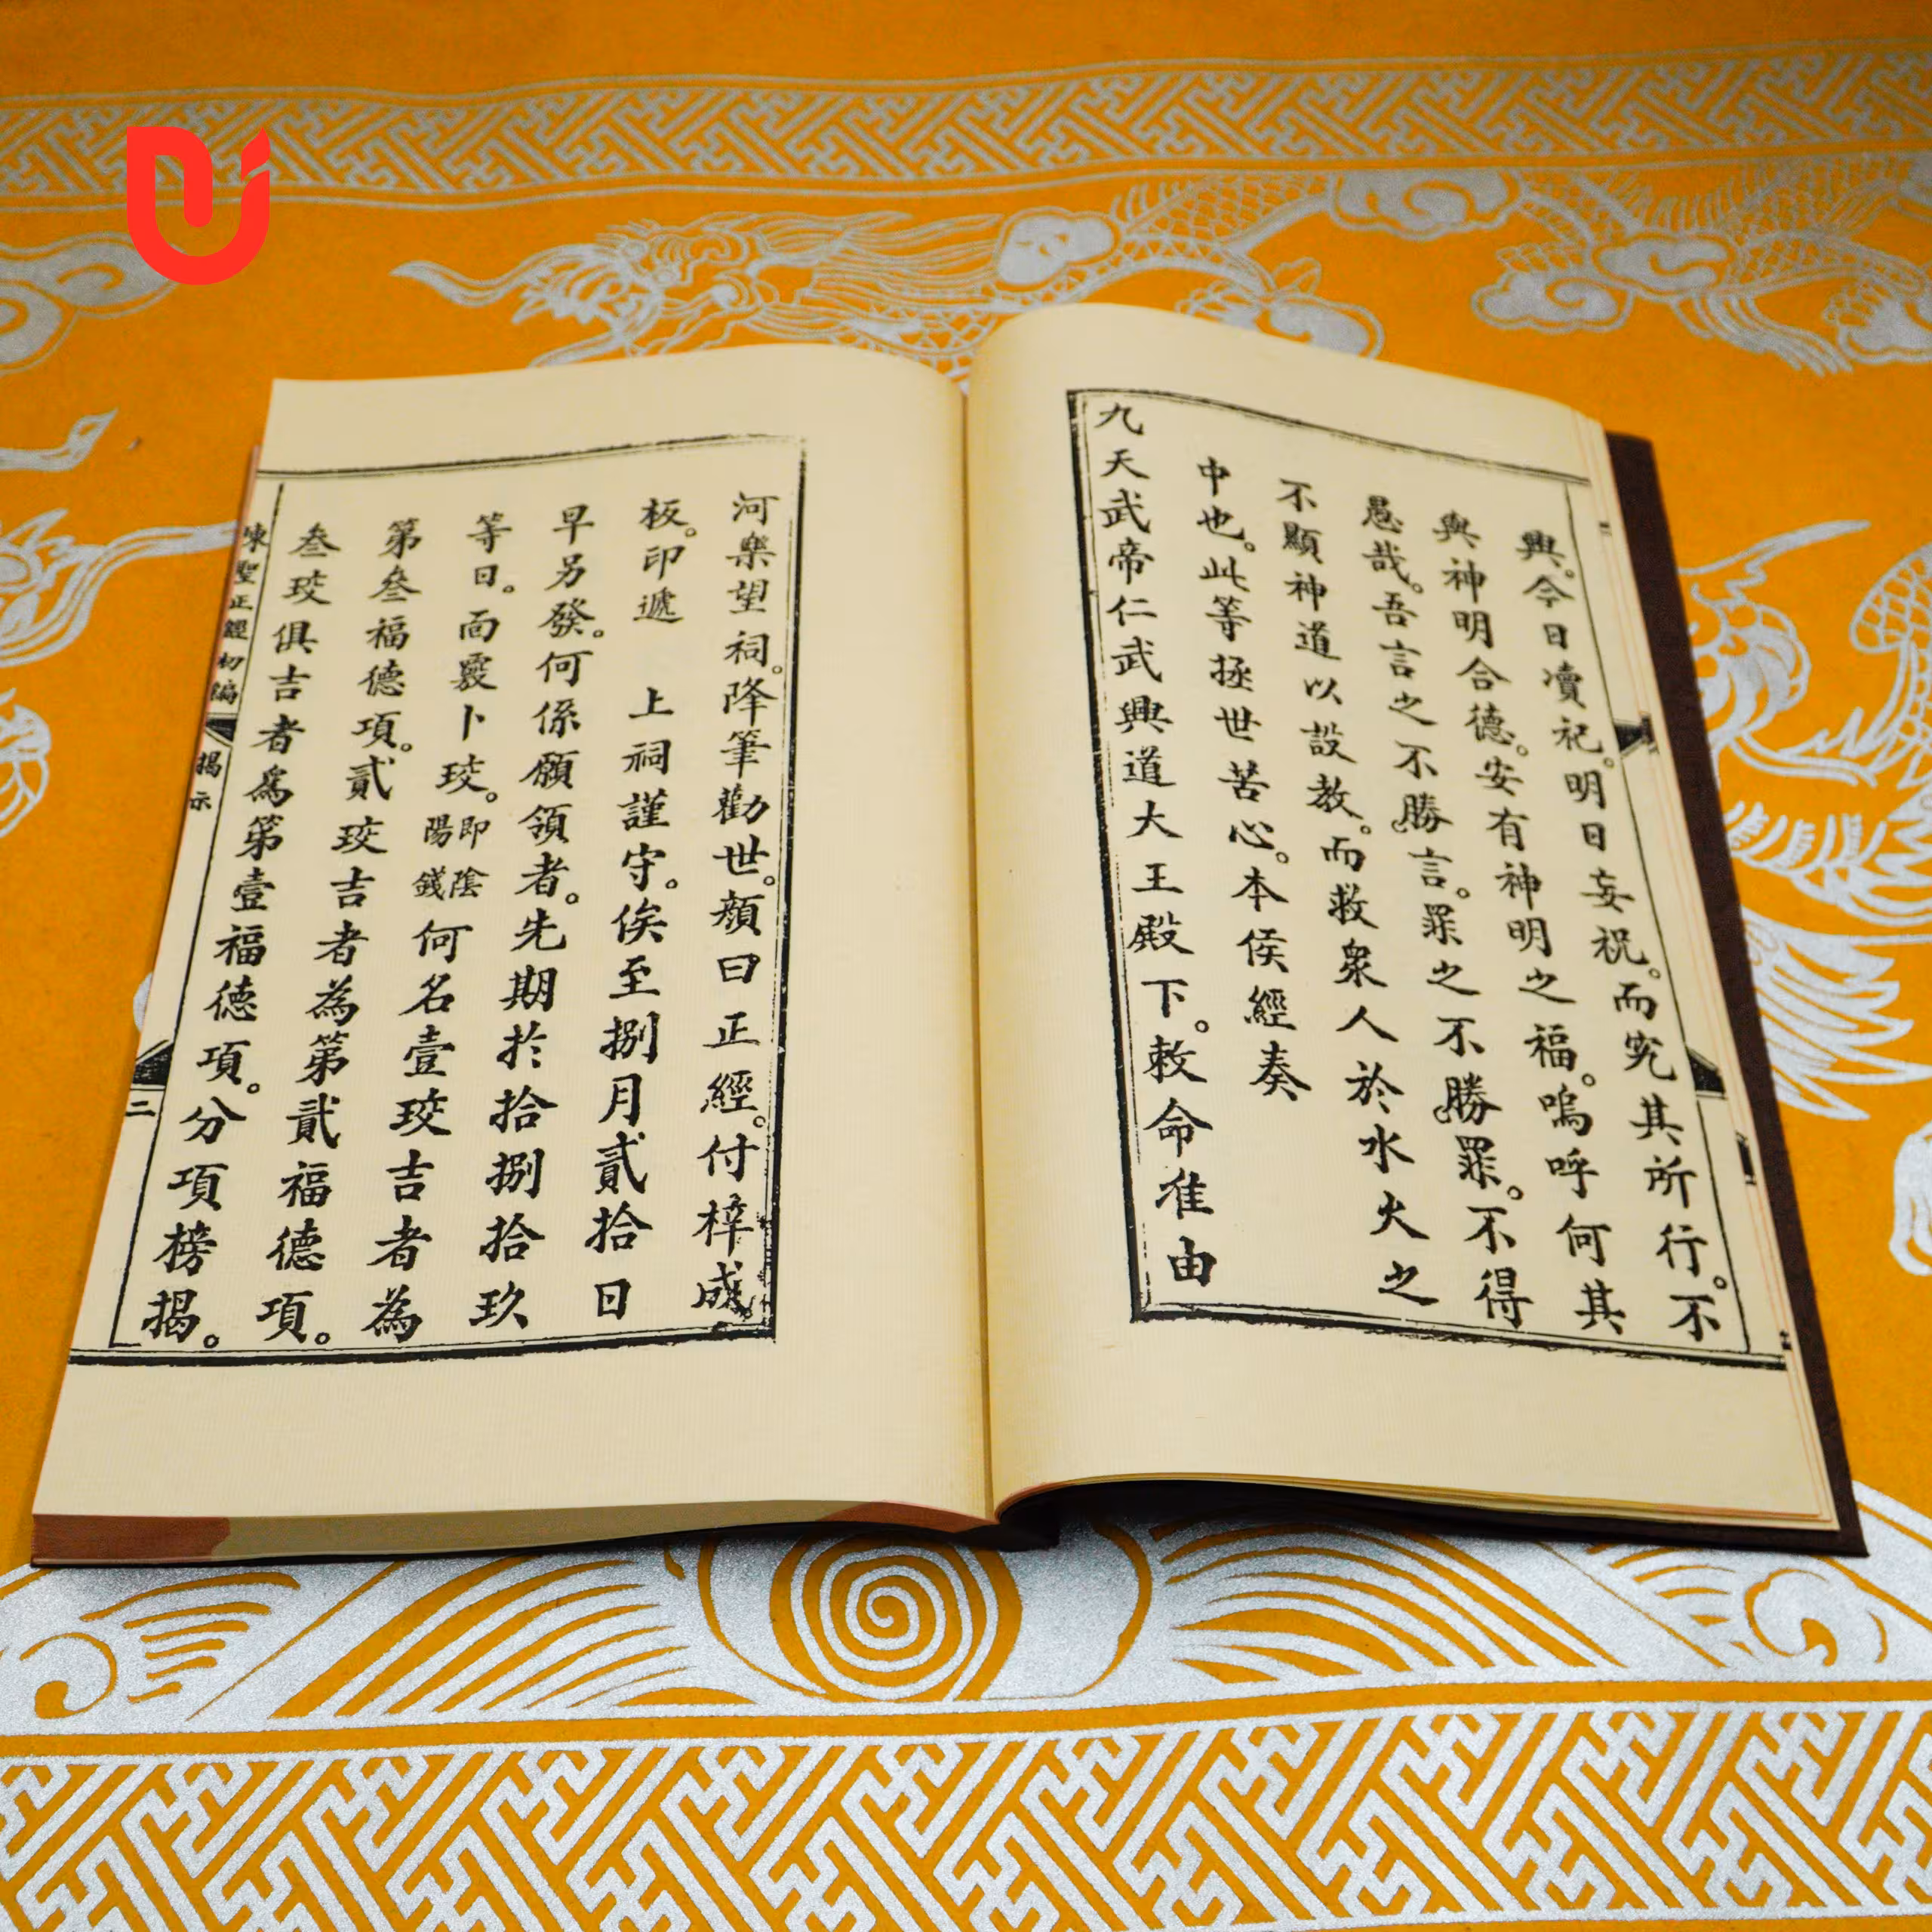 興。今日瀆祀。明日妄祝。而究其所行。不
與神明合德。安有神明之福。嗚呼何其
愚哉。吾言之不勝言。罪之不勝罪。不得
不顯神道以設教。而救衆人於水火之
中也。此等拯世苦心。本侯經奏
九天武帝仁武興道大王殿下。敕命准由
河樂望祠。降筆勸世。顏曰正經。付梓成
板。印遞 上祠謹守。俟至捌月貳拾日
早另發。何係願領者。先期於拾捌拾玖
等日。面覈卜珓。即陰陽錢何名壹珓吉者為
第叄福德項。貳珓吉者為第貳福德項。
叄珓俱吉者爲第壹福德項。分項榜揭。
聖正經初編 揭示 二